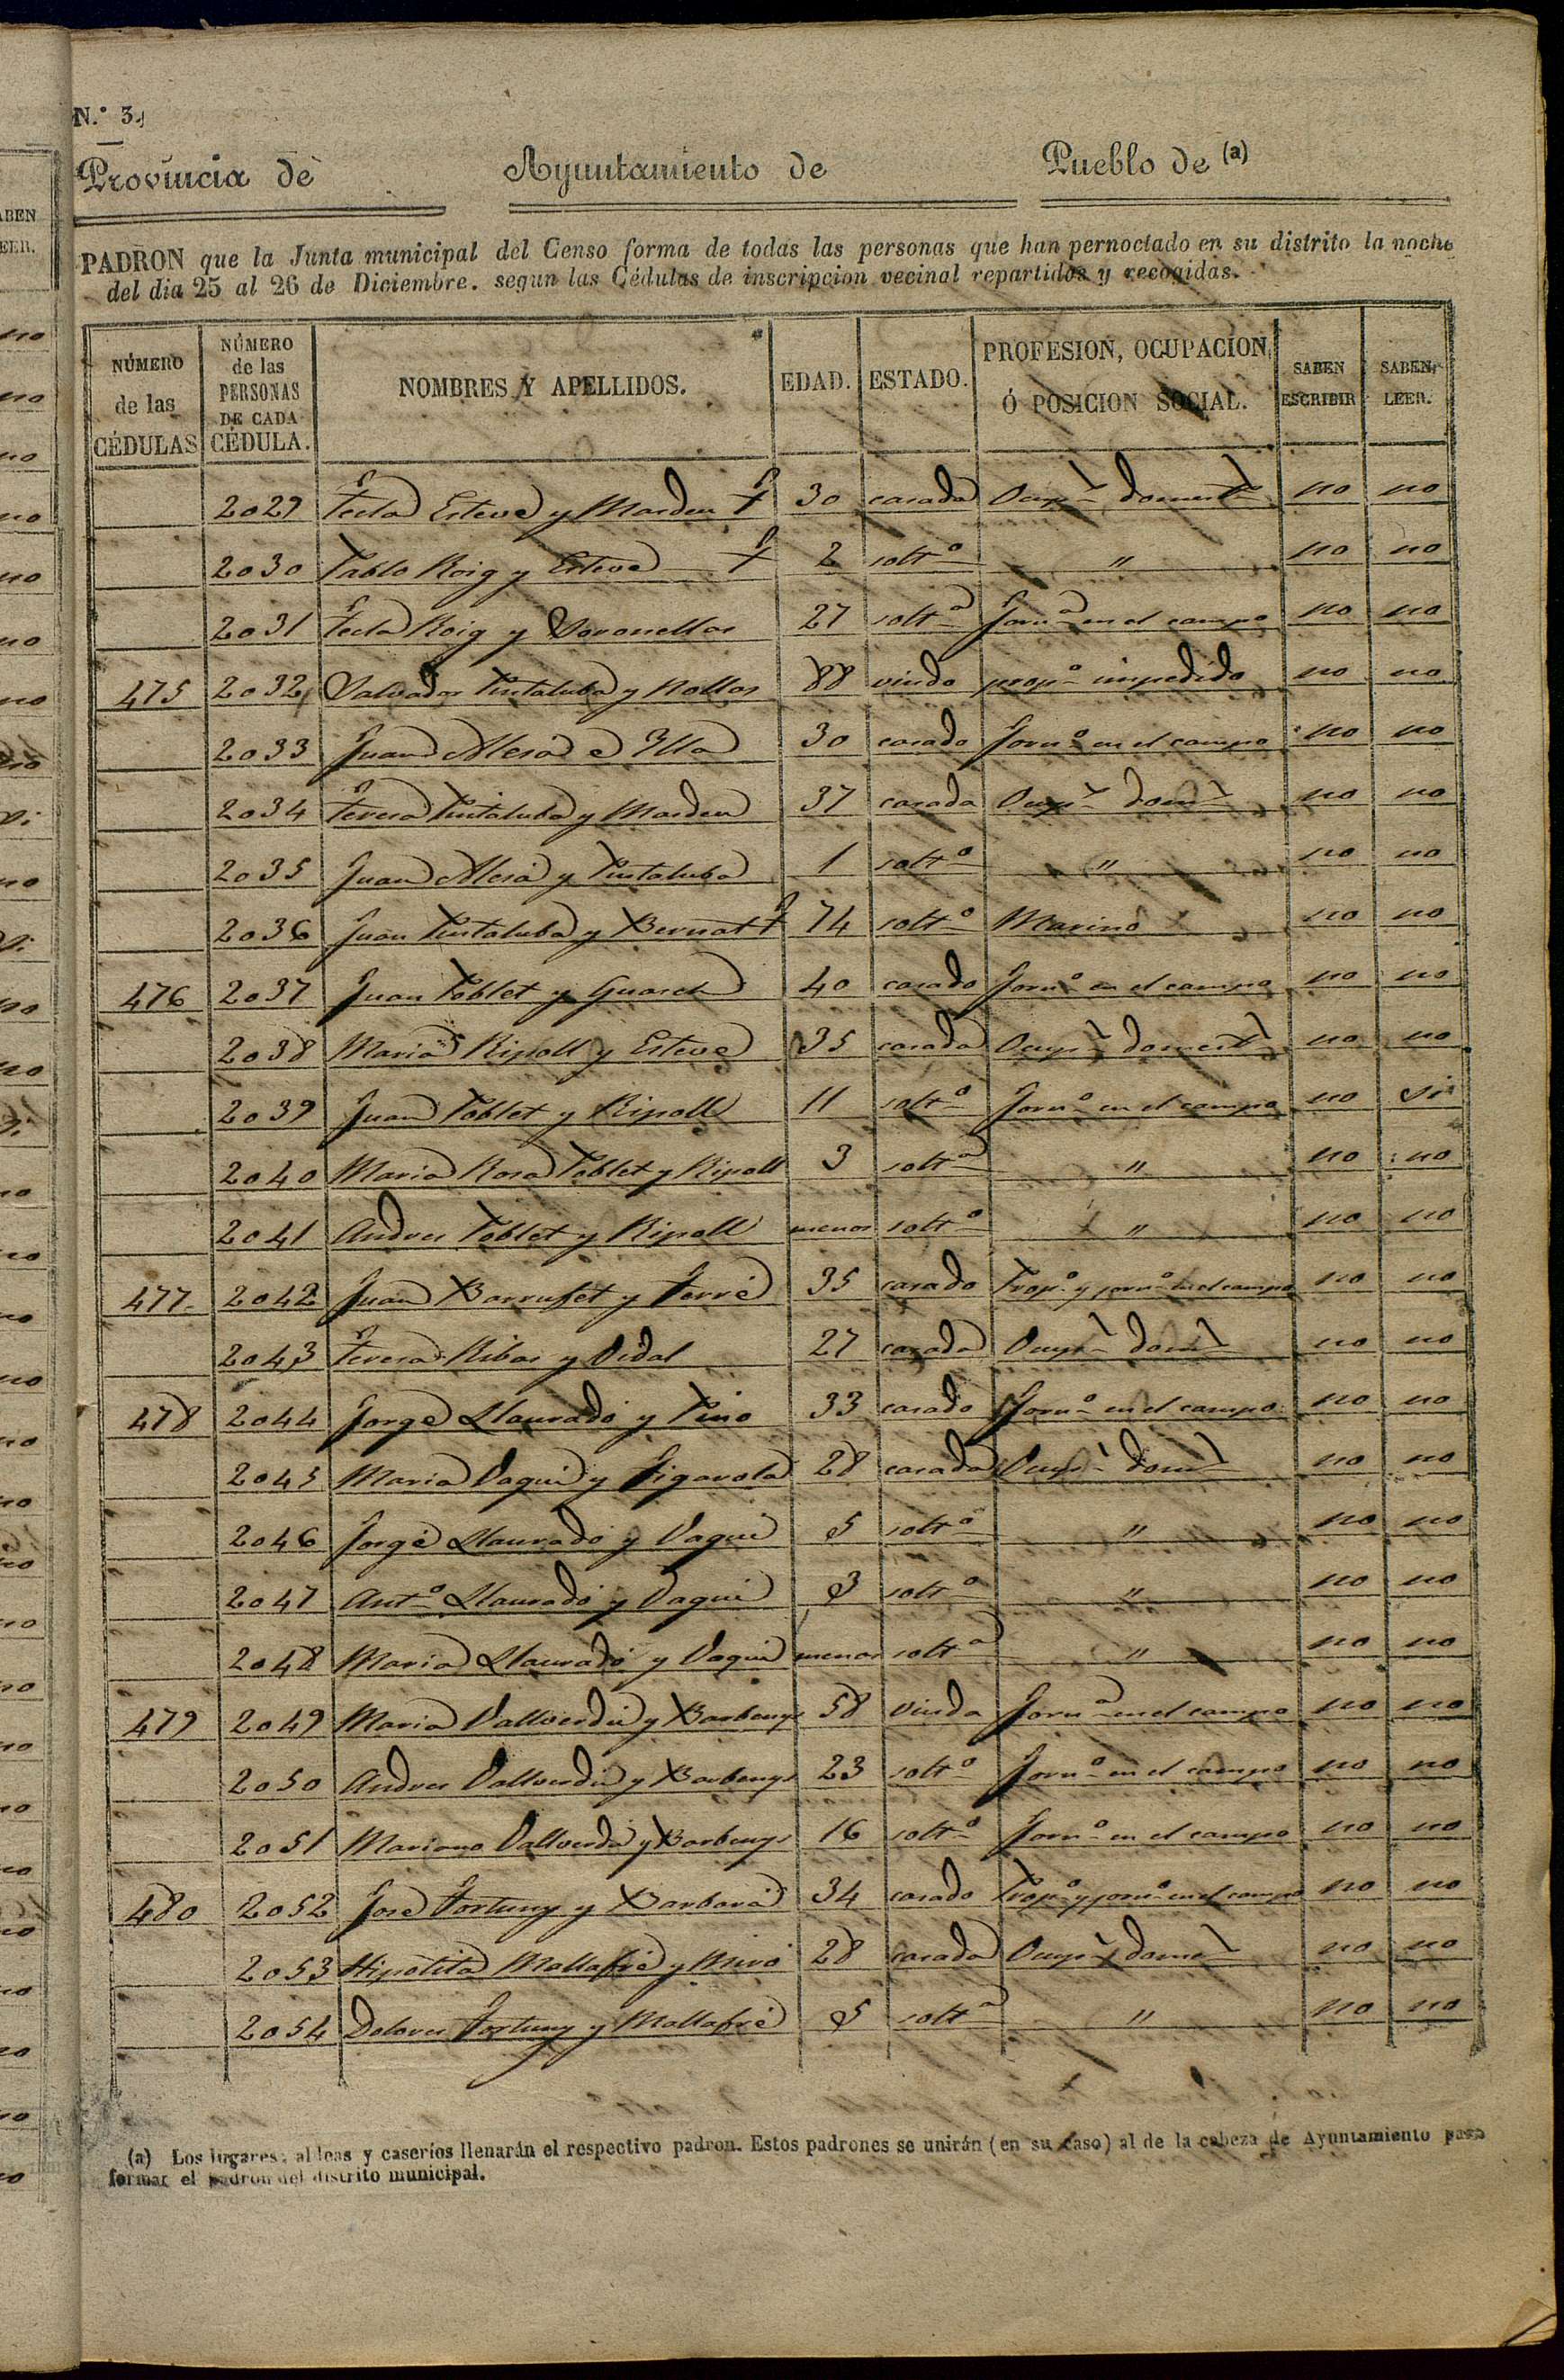 N.º 3.
Provincia de Ayuntamiento de Pueblo de (a)
PADRON que la Junta municipal del Censo forma de todas las personas que han pernoctado en su distrito la noche
del dia 25 al 26 de Diciembre. segun las Cédulas de inscripcion vecinal repartidas y recogidas.
NÚMERO de las CÉDULAS NÚMERO de las PERSONAS DE CADA CÉDULA. NOMBRES Y APELLIDOS. EDAD. ESTADO. PROFESION, OCUPACION, Ó POSICION SOCIAL. SABEN ESCRIBIR SABEN LEER.
2029 Tecla Esteve y Masdeu † 30 casada Ocupª domestª no no
2030 Pablo Roig y Esteve † 2 soltº " no no
2031 Tecla Roig y Soronellas 27 soltª Jornª en el campo no no
475 2032 Salvador Pintaluba y Nollas 88 viudo propº impedido no no
2033 Juan Alesá é Illa 30 casado Jornº en el campo no no
2034 Teresa Pintaluba y Masdeu 37 casada Ocupª domª no no
2035 Juan Alesá y Pintaluba 1 soltº " no no
2036 Juan Pintaluba y Bernat † 74 soltº Marino no no
476 2037 Juan Poblet y Guasch 40 casado Jornº en el campo no no
2038 Maria Ripoll y Esteve 35 casada Ocupª domestª no no
2039 Juan Poblet y Ripoll 11 soltº Jornº en el campo no si
2040 Maria Rosa Poblet y Ripoll 3 soltª " no no
2041 Andres Poblet y Ripoll menos soltº " no no
477 2042 Juan Barrufet y Ferré 35 casado Propº y jornº en el campo no no
2043 Teresa Ribas y Vidal 27 casada Ocupª domª no no
478 2044 Jorge Llauradó y Pino 33 casado Jornº en el campo no no
2045 Maria Vaqué y Figarola 28 casada Ocupª domª no no
2046 Jorge Llauradó y Vaqué 5 soltº " no no
2047 Antº Llauradó y Vaqué 3 soltº " no no
2048 Maria Llauradó y Vaqué menos soltª " no no
479 2049 Maria Vallverdú y Barbenys 58 Viuda Jornª en el campo no no
2050 Andres Vallverdú y Barbenys 23 soltº Jornº en el campo no no
2051 Mariano Vallverdú y Barbenys 16 soltº Jornº en el campo no no
480 2052 José Fortuny y Barbará 34 casado Propº y jornº en el campo no no
2053 Hipólita Mallafré y Miró 28 casada Ocupª domª no no
2054 Dolores Fortuny y Mallafré 5 soltª " no no
(a) Los lugares, aldeas y caseríos llenarán el respectivo padron. Estos padrones se unirán (en su caso) al de la cabeza de Ayuntamiento para
formar el padron del distrito municipal.